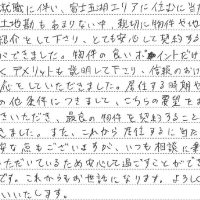 就職に伴い、富士五湖エリアに住むに当た
土地勘もあまりない中、親切に物件や地
紹介をして下さり、とても安心して契約する
ができました。物件の良いポイントだけ
くデメリットも説明して下さり、信頼のおけ
応をしていただきました。居住する時期や
の他条件につきまして、こちらの要望をお
きいただき、最良の物件を契約すること
きました。また、これから居住するに当た
安な点もございますが、いつも相談に乗
いただいているため安心して過ごすことがで
です。これからもお世話になります。よろし
いいたします。